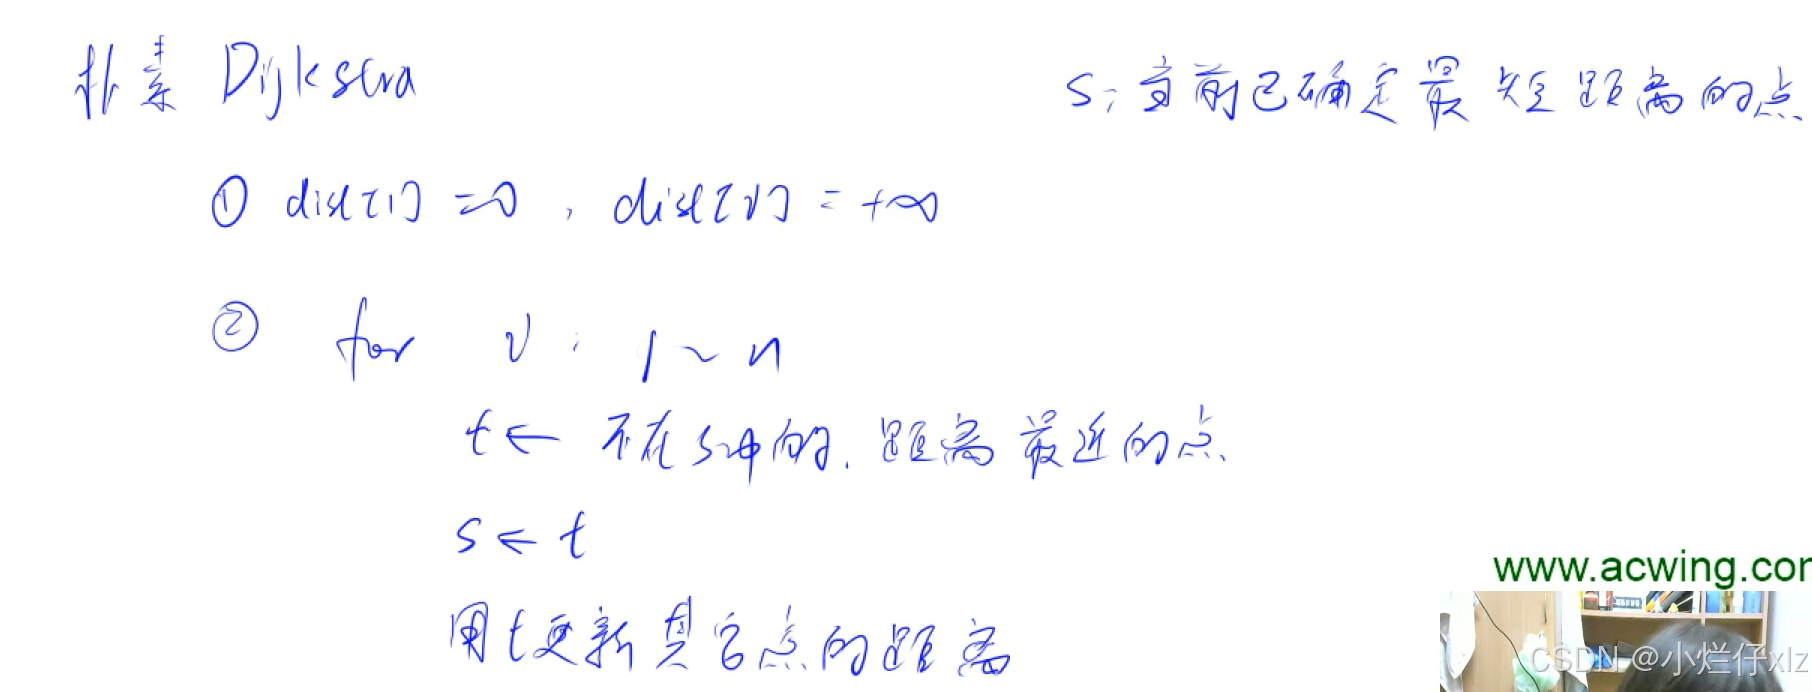 朴素 Dijkstra
s: 当前已确定最短距离的点
① dist[1] = 0, dist[i] = +∞
② for i: 1~n
t ← 不在s中的, 距离最近的点
s ← t
用t更新其它点的距离
www.acwing.com
CSDN @小烂仔xlz